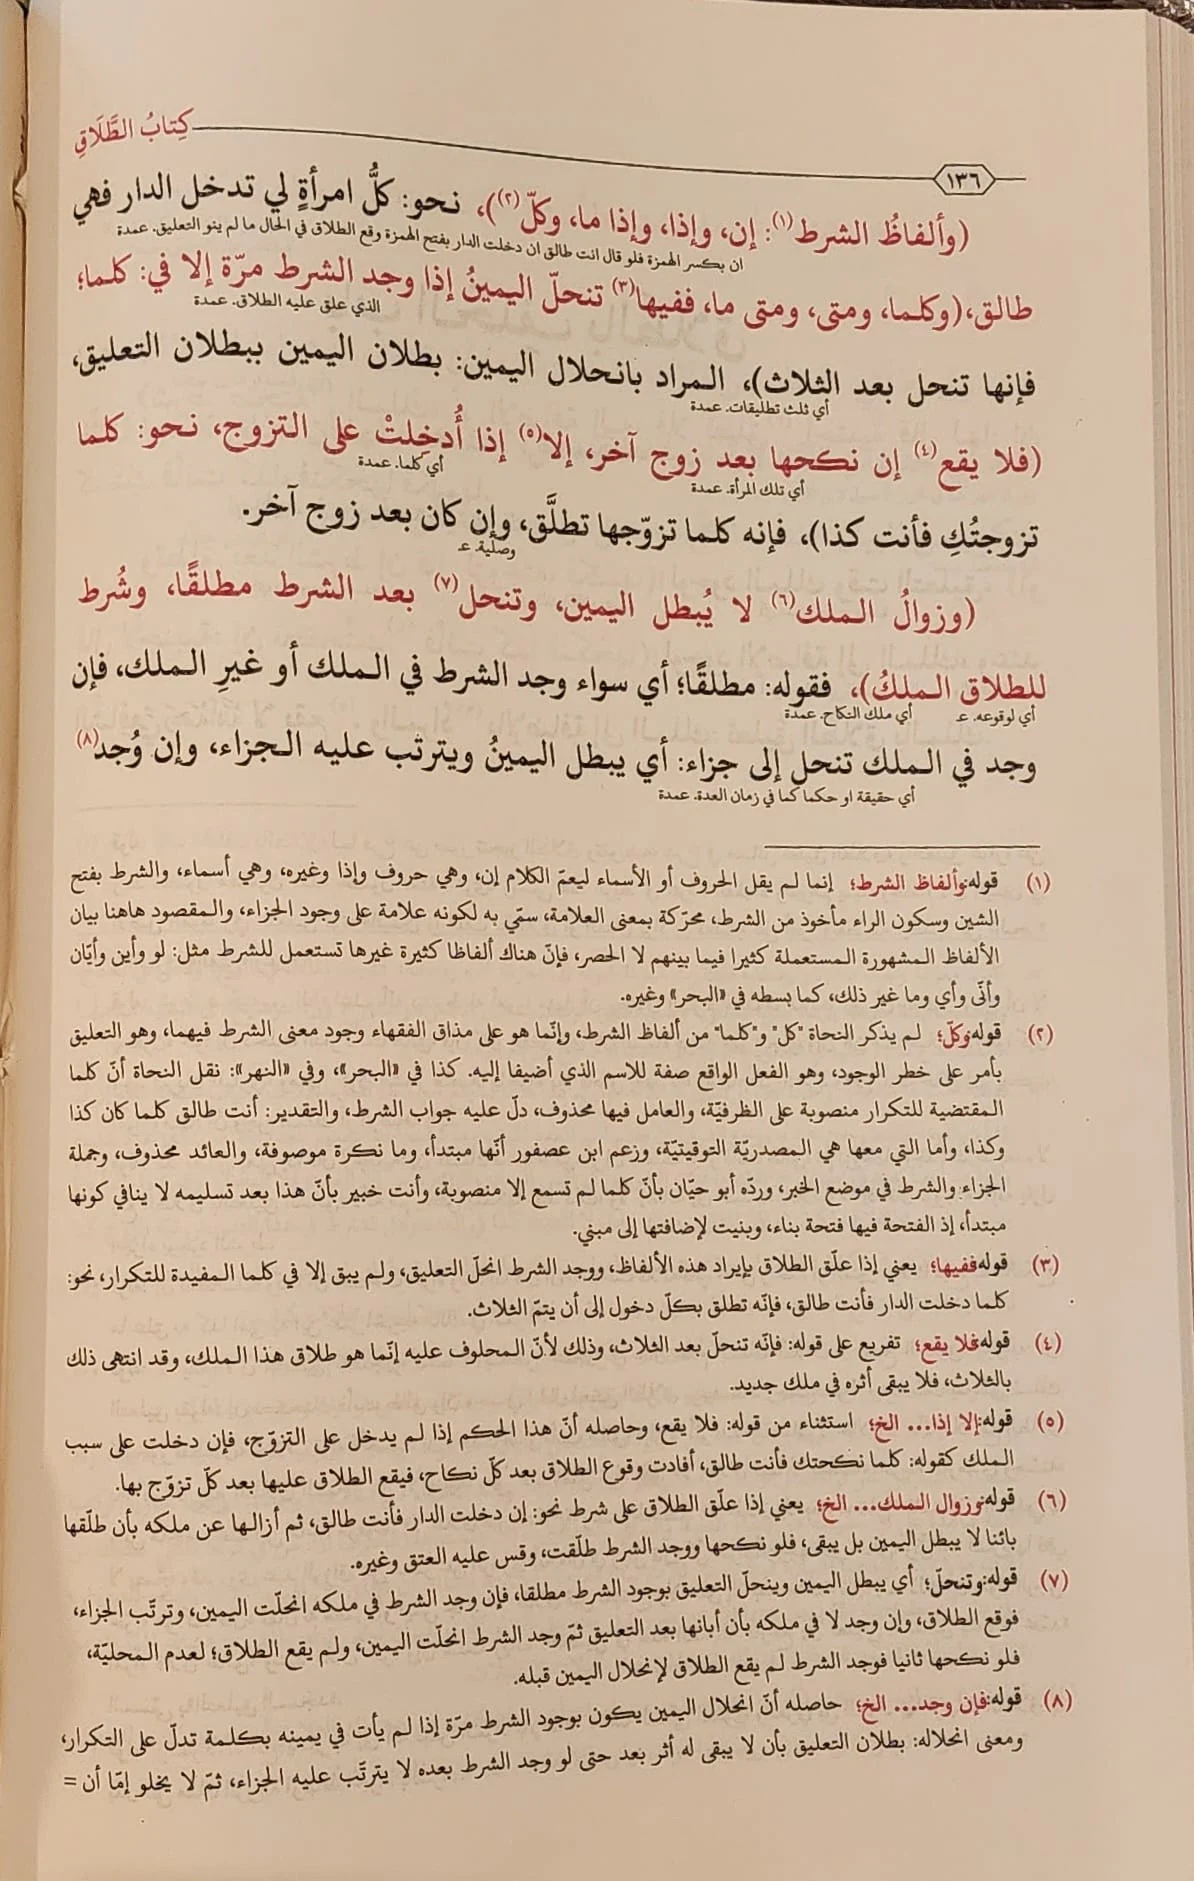 كِتابُ الطَّلَاقِ
١٣٦
(وألفاظُ الشرط(١): إن، وإذا، وإذا ما، وكلّ(٢))، نحو: كلُّ امرأةٍ لي تدخل الدار فهي
ان بكسر الهمزة فلو قال انت طالق ان دخلت الدار بفتح الهمزة وقع الطلاق في الحال ما لم ينو التعليق. عمدة
طالق، (وكلما، ومتى، ومتى ما، ففيها(٣) تنحلّ اليمينُ إذا وجد الشرط مرّة إلا في: كلما؛
الذي علق عليه الطلاق. عمدة
فإنها تنحل بعد الثلاث)، المراد بانحلال اليمين: بطلان اليمين ببطلان التعليق،
أي ثلث تطليقات. عمدة
(فلا يقع(٤) إن نكحها بعد زوج آخر، إلا(٥) إذا أُدخِلتْ على التزوج، نحو: كلما
أي تلك المرأة. عمدة
أي كلما. عمدة
تزوجتُكِ فأنت كذا)، فإنه كلما تزوّجها تطلَّق، وإن كان بعد زوج آخر.
وصلية. عـ
(وزوالُ الملك(٦) لا يُبطل اليمين، وتنحل(٧) بعد الشرط مطلقًا، وشُرط
للطلاق الملكُ)، فقوله: مطلقًا؛ أي سواء وجد الشرط في الملك أو غيرِ الملك، فإن
أي لوقوعه. عـ
أي ملك النكاح. عمدة
وجد في الملك تنحل إلى جزاء: أي يبطل اليمينُ ويترتب عليه الجزاء، وإن وُجد(٨)
أي حقيقة او حكما كما في زمان العدة. عمدة
(١) قوله: وألفاظ الشرط؛ إنما لم يقل الحروف أو الأسماء ليعمّ الكلام إن، وهي حروف وإذا وغيره، وهي أسماء، والشرط بفتح
الشين وسكون الراء مأخوذ من الشرط، محرّكة بمعنى العلامة، سمّي به لكونه علامة على وجود الجزاء، والمقصود هاهنا بيان
الألفاظ المشهورة المستعملة كثيرا فيما بينهم لا الحصر، فإنّ هناك ألفاظا كثيرة غيرها تستعمل للشرط مثل: لو وأين وأيّان
وأنّى وأي وما غير ذلك، كما بسطه في «البحر» وغيره.
(٢) قوله: وكلّ؛ لم يذكر النحاة "كل" و"كلما" من ألفاظ الشرط، وإنّما هو على مذاق الفقهاء وجود معنى الشرط فيهما، وهو التعليق
بأمر على خطر الوجود، وهو الفعل الواقع صفة للاسم الذي أضيفا إليه. كذا في «البحر»، وفي «النهر»: نقل النحاة أنّ كلما
المقتضية للتكرار منصوبة على الظرفيّة، والعامل فيها محذوف، دلّ عليه جواب الشرط، والتقدير: أنت طالق كلما كان كذا
وكذا، وأما التي معها هي المصدريّة التوقيتيّة، وزعم ابن عصفور أنّها مبتدأ، وما نكرة موصوفة، والعائد محذوف، وجملة
الجزاء والشرط في موضع الخبر، وردّه أبو حيّان بأنّ كلما لم تسمع إلا منصوبة، وأنت خبير بأنّ هذا بعد تسليمه لا ينافي كونها
مبتدأ، إذ الفتحة فيها فتحة بناء، وبنيت لإضافتها إلى مبني.
(٣) قوله: ففيها؛ يعني إذا علّق الطلاق بإيراد هذه الألفاظ، ووجد الشرط انحلّ التعليق، ولم يبق إلا في كلما المفيدة للتكرار، نحو:
كلما دخلت الدار فأنت طالق، فإنّه تطلق بكلّ دخول إلى أن يتمّ الثلاث.
(٤) قوله: فلا يقع؛ تفريع على قوله: فإنّه تنحلّ بعد الثلاث، وذلك لأنّ المحلوف عليه إنّما هو طلاق هذا الملك، وقد انتهى ذلك
بالثلاث، فلا يبقى أثره في ملك جديد.
(٥) قوله: إلا إذا... الخ؛ استثناء من قوله: فلا يقع، وحاصله أنّ هذا الحكم إذا لم يدخل على التزوّج، فإن دخلت على سبب
الملك كقوله: كلما نكحتك فأنت طالق، أفادت وقوع الطلاق بعد كلّ نكاح، فيقع الطلاق عليها بعد كلّ تزوّج بها.
(٦) قوله: وزوال الملك... الخ؛ يعني إذا علّق الطلاق على شرط نحو: إن دخلت الدار فأنت طالق، ثم أزالها عن ملكه بأن طلّقها
بائنا لا يبطل اليمين بل يبقى، فلو نكحها ووجد الشرط طلّقت، وقس عليه العتق وغيره.
(٧) قوله: وتنحلّ؛ أي يبطل اليمين وينحلّ التعليق بوجود الشرط مطلقا، فإن وجد الشرط في ملكه انحلّت اليمين، وترتّب الجزاء،
فوقع الطلاق، وإن وجد لا في ملكه بأن أبانها بعد التعليق ثمّ وجد الشرط انحلّت اليمين، ولم يقع الطلاق؛ لعدم المحليّة،
فلو نكحها ثانيا فوجد الشرط لم يقع الطلاق لإنحلال اليمين قبله.
(٨) قوله: فإن وجد... الخ؛ حاصله أنّ انحلال اليمين يكون بوجود الشرط مرّة إذا لم يأت في يمينه بكلمة تدلّ على التكرار،
ومعنى انحلاله: بطلان التعليق بأن لا يبقى له أثر بعد حتى لو وجد الشرط بعده لا يترتّب عليه الجزاء، ثمّ لا يخلو إمّا أن =